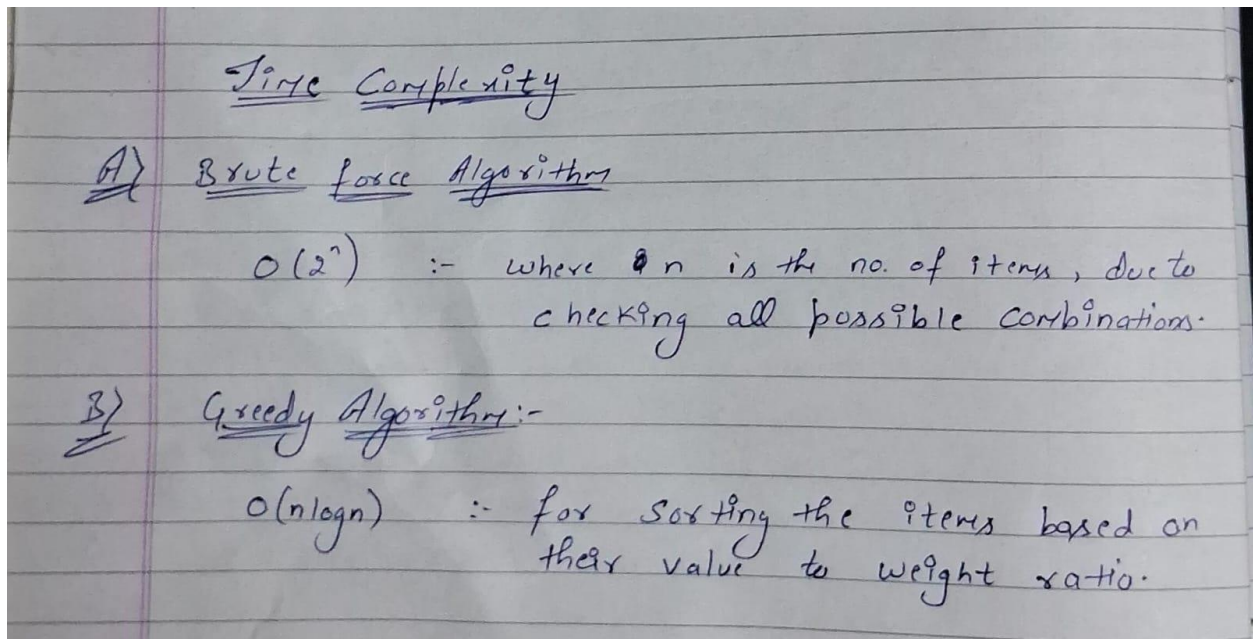 Time Complexity
A) Brute force Algorithm
O(2ⁿ) :- where n is the no. of items, due to
checking all possible combinations.
B) Greedy Algorithm:-
O(nlogn) :- for sorting the items based on
their value to weight ratio.